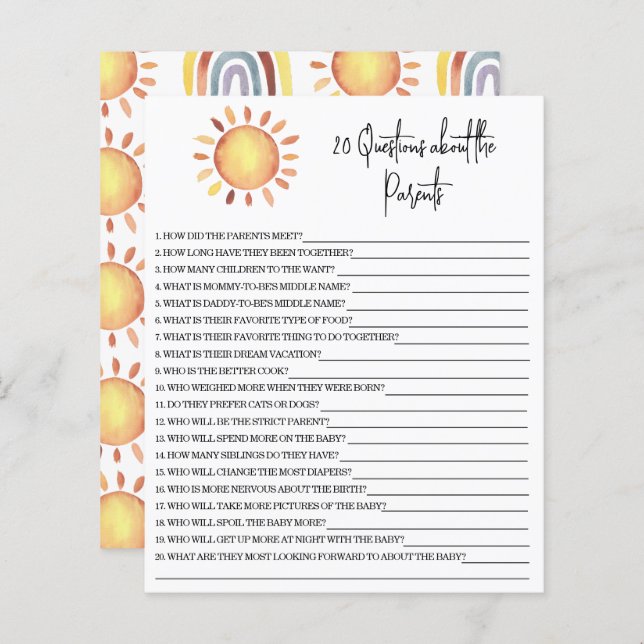 20 Questions about the
Parents
1. HOW DID THE PARENTS MEET?
2. HOW LONG HAVE THEY BEEN TOGETHER?
3. HOW MANY CHILDREN TO THE WANT?
4. WHAT IS MOMMY-TO-BE'S MIDDLE NAME?
5. WHAT IS DADDY-TO-BE'S MIDDLE NAME?
6. WHAT IS THEIR FAVORITE TYPE OF FOOD?
7. WHAT IS THEIR FAVORITE THING TO DO TOGETHER?
8. WHAT IS THEIR DREAM VACATION?
9. WHO IS THE BETTER COOK?
10. WHO WEIGHED MORE WHEN THEY WERE BORN?
11. DO THEY PREFER CATS OR DOGS?
12. WHO WILL BE THE STRICT PARENT?
13. WHO WILL SPEND MORE ON THE BABY?
14. HOW MANY SIBLINGS DO THEY HAVE?
15. WHO WILL CHANGE THE MOST DIAPERS?
16. WHO IS MORE NERVOUS ABOUT THE BIRTH?
17. WHO WILL TAKE MORE PICTURES OF THE BABY?
18. WHO WILL SPOIL THE BABY MORE?
19. WHO WILL GET UP MORE AT NIGHT WITH THE BABY?
20. WHAT ARE THEY MOST LOOKING FORWARD TO ABOUT THE BABY?